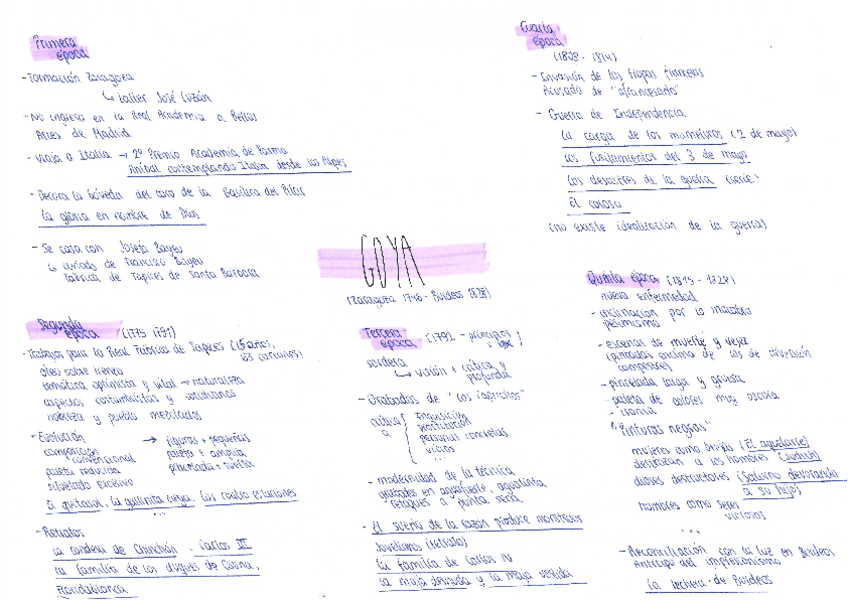 Primera
época
- Formación Zaragoza
↳ taller José Luzán
- No ingresa en la Real Academia a Bellas
Artes de Madrid
- Viaja a Italia → 2º Premio Academia de Parma
Aníbal contemplando Italia desde los Alpes
- Decora la bóveda del coro de la Basílica del Pilar
La gloria en nombre de Dios
- Se casa con Josefa Bayeu
↳ cuñado de Francisco Bayeu
Fábrica de Tapices de Santa Bárbara
Segunda
época (1775
- Trabajos para la Real Fábrica de Tapices (15 años,
63 cartones)
óleo sobre lienzo
temática optimista y vital → naturaleza
aspectos costumbristas y cotidianos
nobleza y pueblo mezclados
- Evolución → figuras + pequeñas
composición paleta + amplia
convencional pincelada + suelta
paleta reducida
modelado excesivo
El quitasol, La gallinita ciega, Las cuatro estaciones
...
- Retratos
La condesa de Chinchón, Carlos III
La familia de los duques de Osuna,
Floridablanca
GOYA
(Zaragoza 1746 - Burdeos 1828)
Tercera
época (1792 - principios
sordera
↳ visión + crítica y
profunda
- Grabados de "Los Caprichos"
crítica
a
Inquisición
prostitución
personas concretas
vicios
...
- modernidad de la técnica
grabados en aguafuerte, aguatinta,
retoques a punta seca
- El sueño de la razón produce monstruos
Jovellanos (retrato)
La familia de Carlos IV
La maja desnuda y la maja vestida
Cuarta
época
(1808 - 1814)
- Invasión de las tropas francesas
Acusado de "afrancesado"
- Guerra de Independencia
La carga de los mamelucos (2 de mayo)
Los fusilamientos del 3 de mayo
Los desastres de la guerra (serie)
El coloso
(no existe idealización de la guerra)
Quinta época (1815 - 1828)
nueva enfermedad
- inclinación por lo macabro
pesimismo
- escenas de muerte y vejez
(pintadas encima de las de diversión
campestre)
- pincelada larga y gruesa
- paleta de colores muy oscura
- ironía
"Pinturas negras"
mujeres como brujas (El aquelarre)
destrozan a los hombres (Judith)
dioses destructores (Saturno devorando
a su hijo)
hombres como seres
...
- Reconciliación con la luz en Burdeos
Anticipo del impresionismo
La lechera de Burdeos